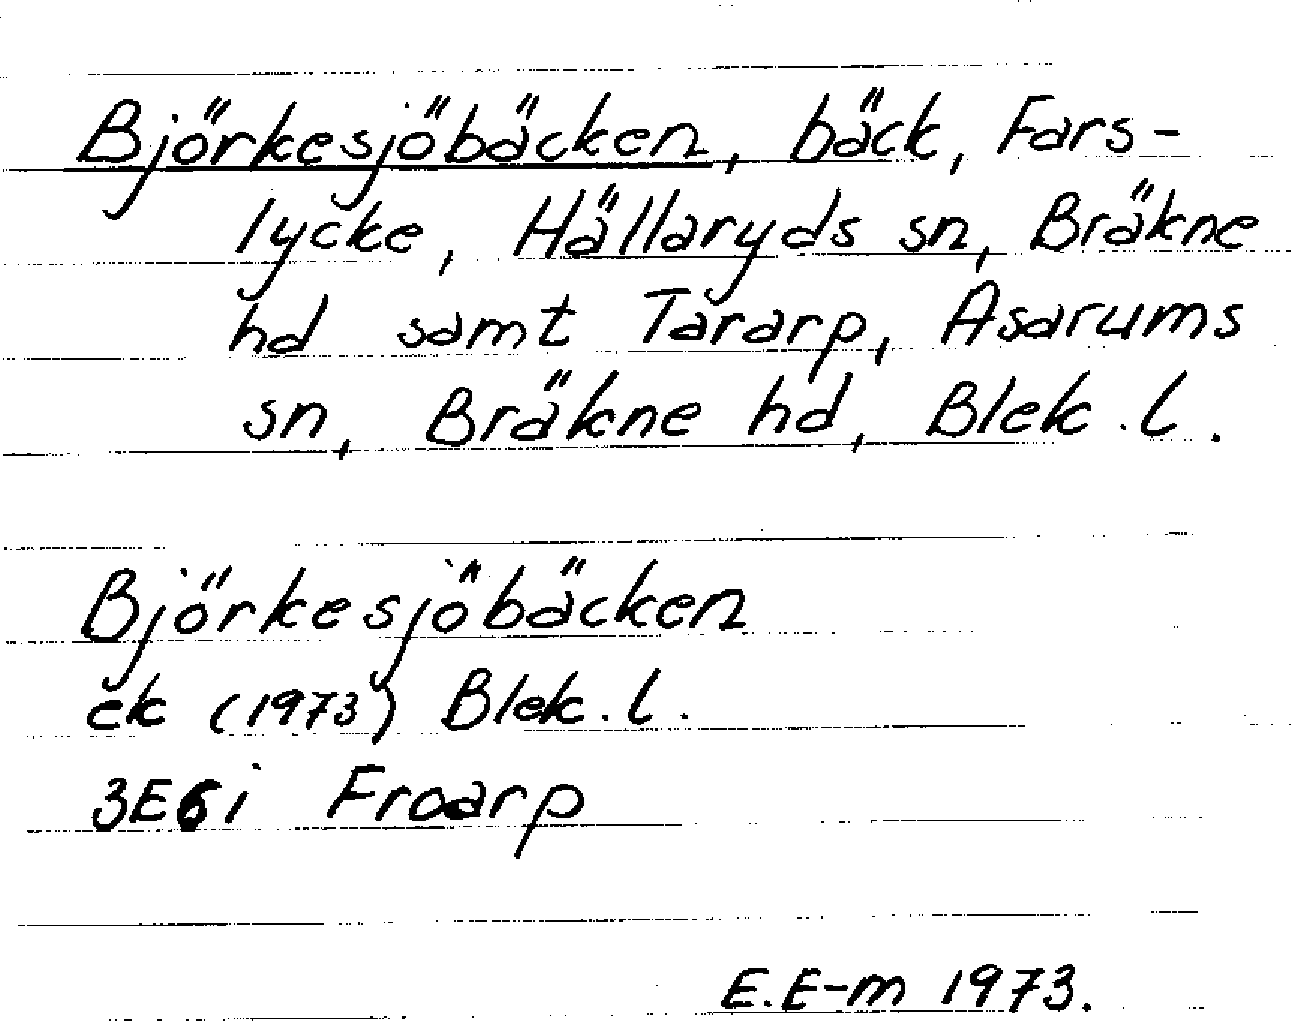 Björkesjöbäcken, bäck, Fars-
lycke, Hällaryds sn, Bräkne
hd samt Tararp, Asarums
sn, Bräkne hd, Blek. l.
Björkesjöbäcken
ek (1973) Blek. l.
3E6i Froarp
E.E-m 1973.